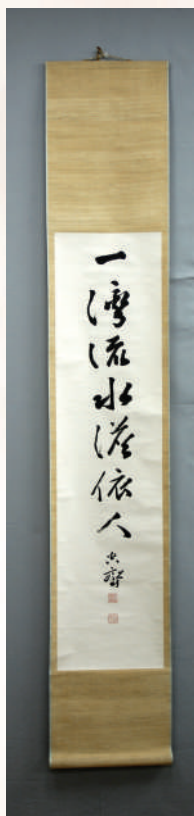 一灣流水澹依人